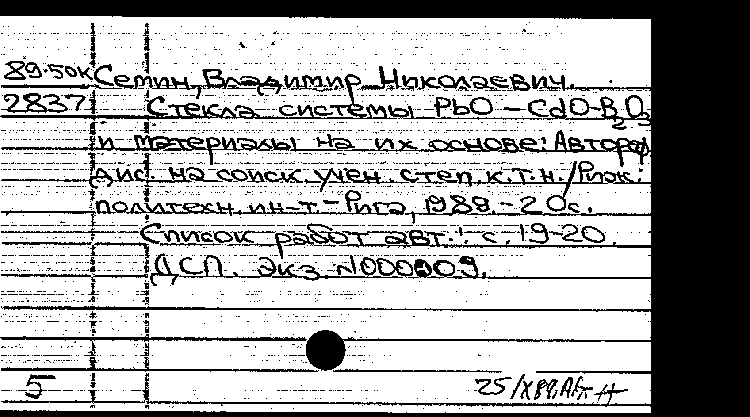 89-50к Семин, Владимир Николаевич.
2837 Стекла системы PbO-CdO-B2O3
и материалы на их основе: Автореф.
дис. на соиск. учен. степ. к.т.н./Риж.
политехн. ин-т.-Рига, 1989.-20с.
Список работ авт.: с.19-20.
ДСП. Экз. N000009.
5 25/X 89.